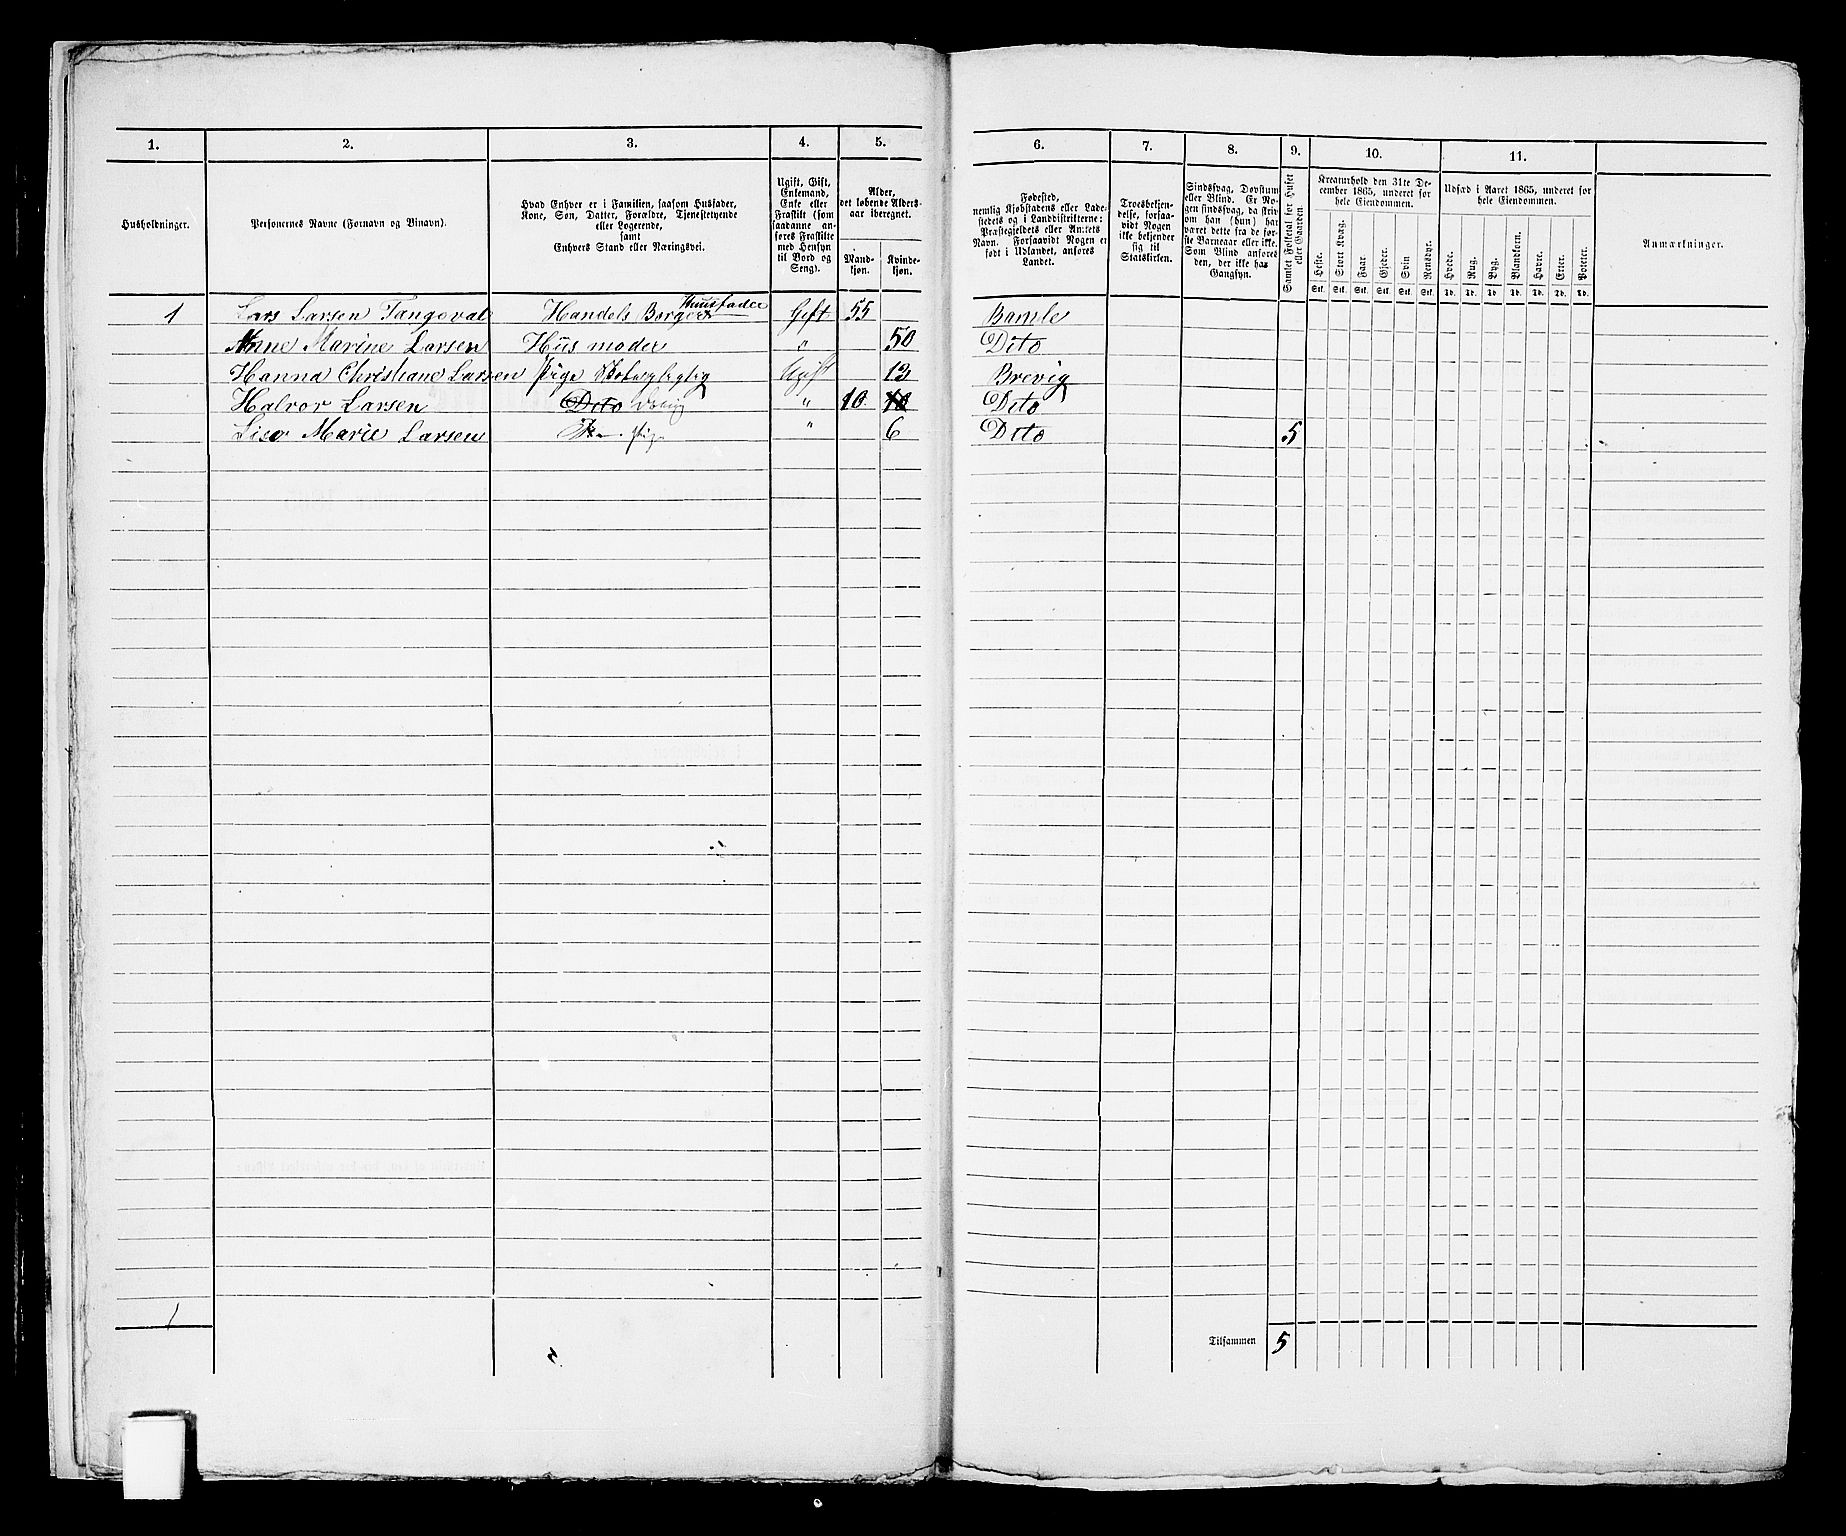 1. 2. 3. 4. 5. 6. 7. 8. 9. 10. 11.
Husholdninger.
Personernes Navne (Fornavn og Binavn).
Hvad Enhver er i Familien, saasom Husfader,
Kone, Søn, Datter, Forældre, Tjenestetyende
eller Logerende,
samt
Enhvers Stand eller Næringsvei.
Ugift, Gift,
Enkemand,
Enke eller
Fraskilt (som
saadanne an-
føres Fraskilte
med Hensyn
til Bord og
Seng).
Alder,
det løbende Alders-
aar iberegnet.
Mand-
kjøn.
Kvinde-
kjøn.
Fødested,
nemlig Kjøbstadens eller Lade-
stedets og i Landdistrikterne:
Præstegjeldets eller Annexets
Navn. Forsaavidt Nogen er
født i Udlandet, anføres
Landet.
Troesbekjen-
delse, forsaa-
vidt Nogen
ikke bekjender
sig til
Statskirken.
Sindssvag, Døvstum
eller Blind. Er No-
gen sindssvag, da skriv
om han (hun) har
været dette fra de før-
ste Barneaar eller ikke.
Som Blind anføres
den, der ikke har
Gangsyn.
Samlet Folketal for Huset
eller Gaarden.
Kreaturhold den 31te De-
cember 1865, underet for
hele Eiendommen.
Heste. Stort Kvæg. Faar. Gjeder. Svin Rensdyr.
Stk. Stk. Stk. Stk. Stk. Stk.
Udsæd i Aaret 1865, underet for
hele Eiendommen.
Hvede. Rug. Byg. Blandkorn. Havre. Erter. Poteter.
Td. Td. Td. Td. Td. Td. Td.
Anmærkninger.
1 Lars Larsen Tangeval Handels Borger Huusfader Gift 55 Bamle
Anne Marine Larsen Hüs moder " 50 Dito
Hanna Christiane Larsen Pige Ugift 13 Brevig
Halvor Larsen Dito " 10 10 Dito
Lise Marie Larsen " 6 Dito 5
1
Tilsammen 5